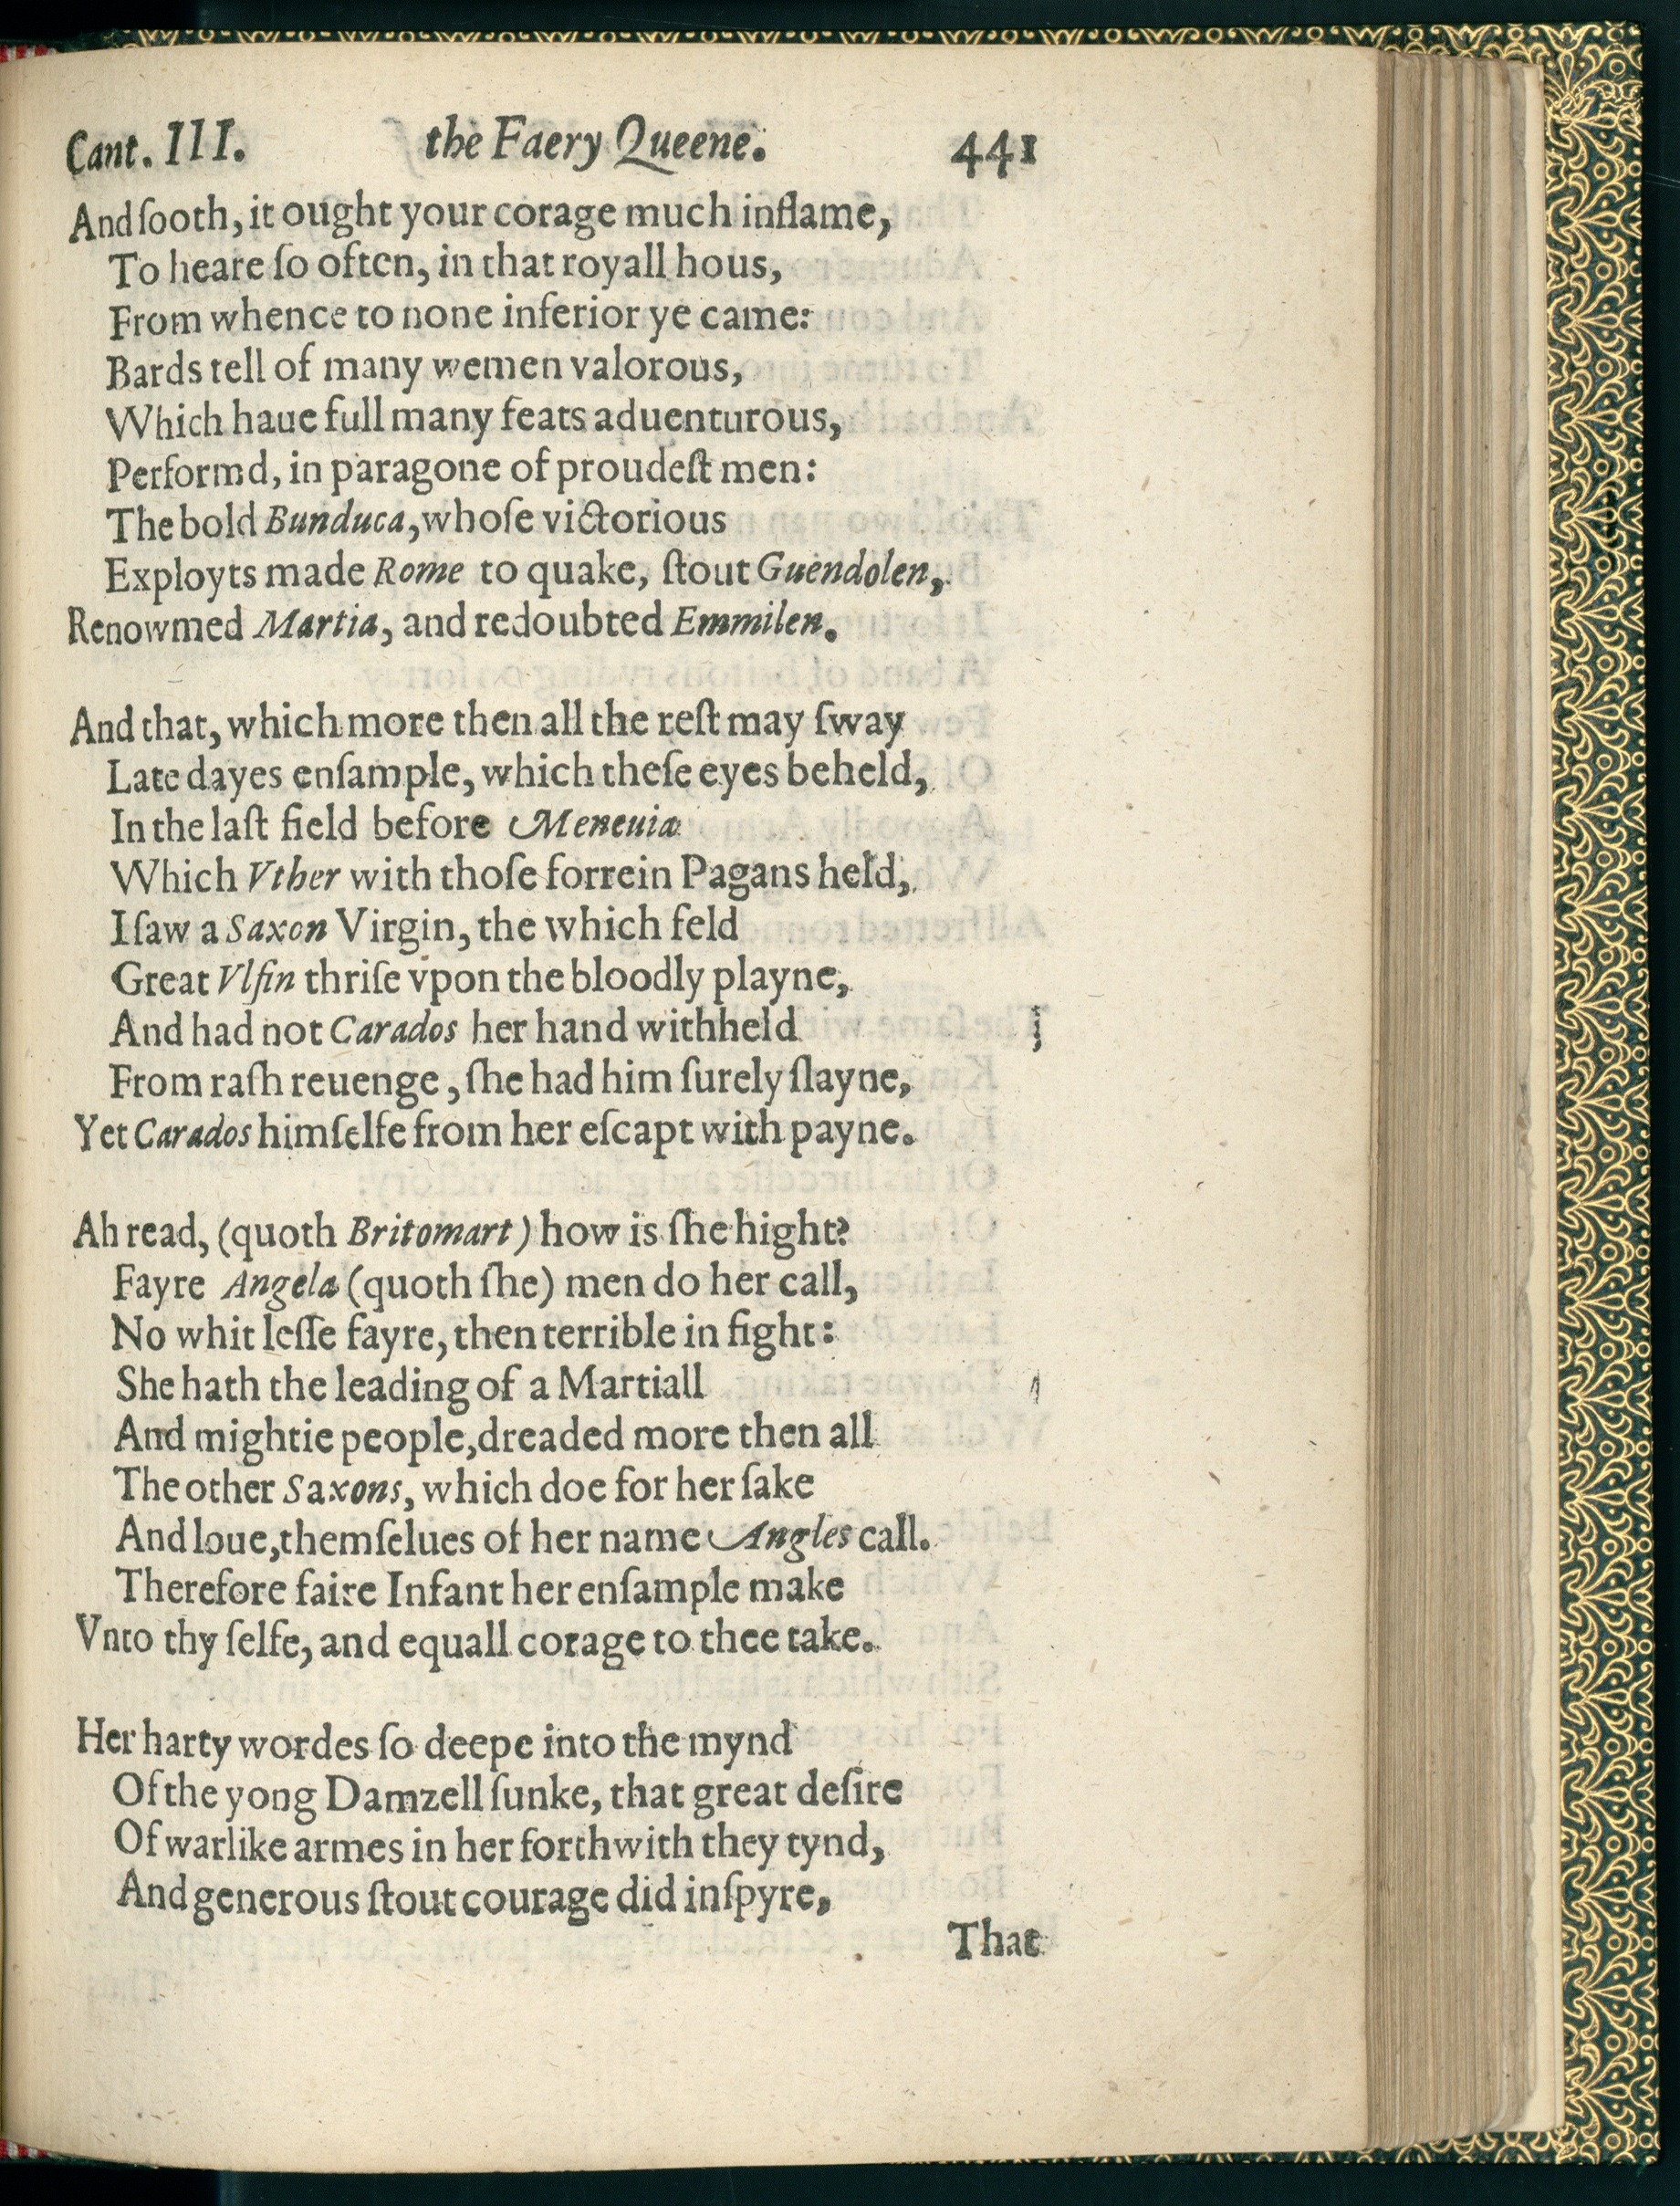 Cant. III. the Faery Queene. 441
And ſooth, it ought your corage much inflame,
To heare ſo often, in that royall hous,
From whence to none inferior ye came:
Bards tell of many wemen valorous,
Which haue full many feats aduenturous,
Performd, in paragone of proudeſt men:
The bold Bunduca, whoſe victorious
Exployts made Rome to quake, ſtout Guendolen,
Renowmed Martia, and redoubted Emmilen.
And that, which more then all the reſt may ſway
Late dayes enſample, which theſe eyes beheld,
In the laſt field before Meneuia
Which Vther with thoſe forrein Pagans held,
I ſaw a Saxon Virgin, the which feld
Great Vlfin thriſe vpon the bloodly playne,
And had not Carados her hand withheld
From raſh reuenge, ſhe had him ſurely ſlayne,
Yet Carados himſelfe from her eſcapt with payne.
Ah read, (quoth Britomart) how is ſhe hight?
Fayre Angela (quoth ſhe) men do her call,
No whit leſſe fayre, then terrible in fight:
She hath the leading of a Martiall
And mightie people, dreaded more then all
The other Saxons, which doe for her ſake
And loue, themſelues of her name Angles call.
Therefore faire Infant her enſample make
Vnto thy ſelfe, and equall corage to thee take.
Her harty wordes ſo deepe into the mynd
Of the yong Damzell ſunke, that great deſire
Of warlike armes in her forthwith they tynd,
And generous ſtout courage did inſpyre,
That